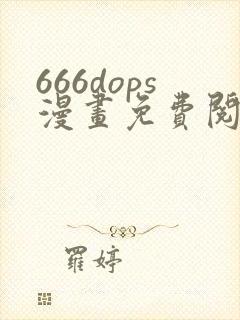 666dops
漫畫免費閱
羅婷